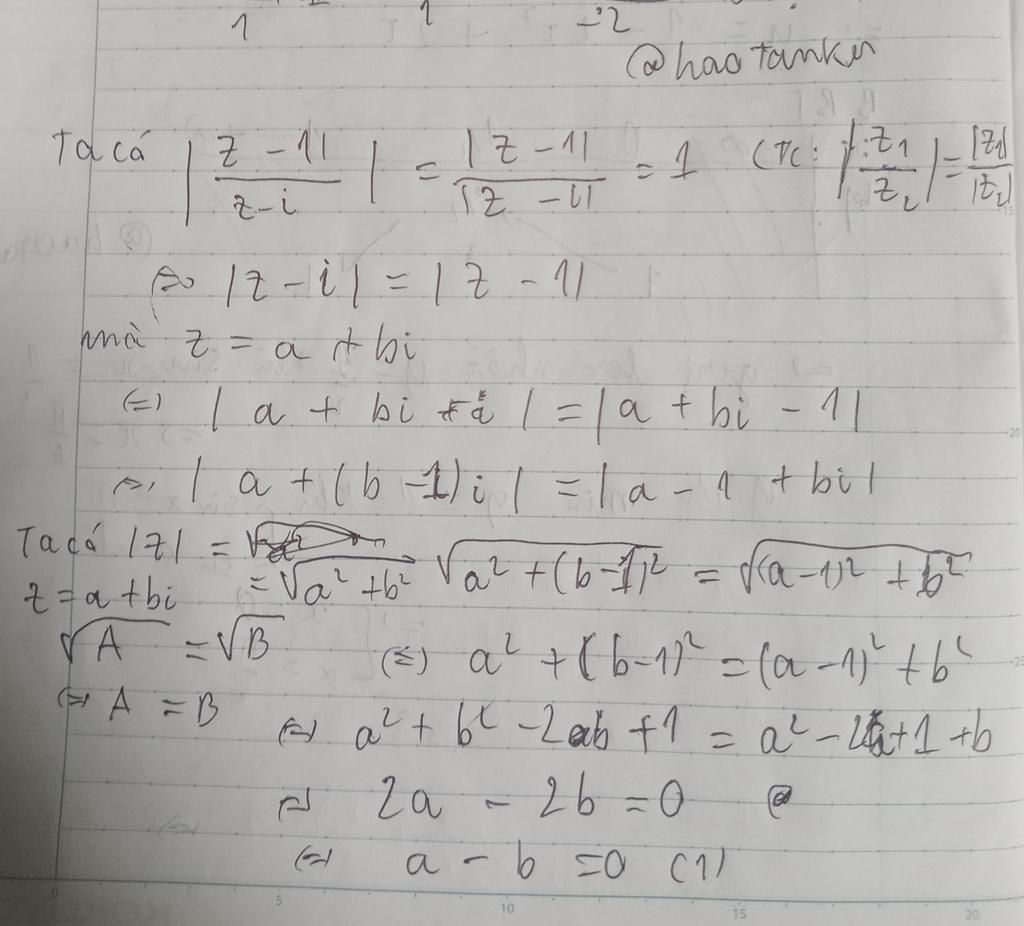 1 1 -2
@haotankn
Ta có |z - 1 / z - i| = |z - 1| / |z - i| = 1 (TC: |z₁ / z₂| = |z₁| / |z₂|)
⇔ |z - i| = |z - 1|
mà z = a + bi
⇔ |a + bi - i| = |a + bi - 1|
⇔ |a + (b - 1)i| = |a - 1 + bi|
Ta có |z| =
z = a + bi = √(a² + b²) √(a² + (b - 1)²) = √((a - 1)² + b²)
√A = √B ⇔ a² + (b - 1)² = (a - 1)² + b²
⇔ A = B ⇔ a² + b² - 2b + 1 = a² - 2a + 1 + b
⇔ 2a - 2b = 0
⇔ a - b = 0 (1)